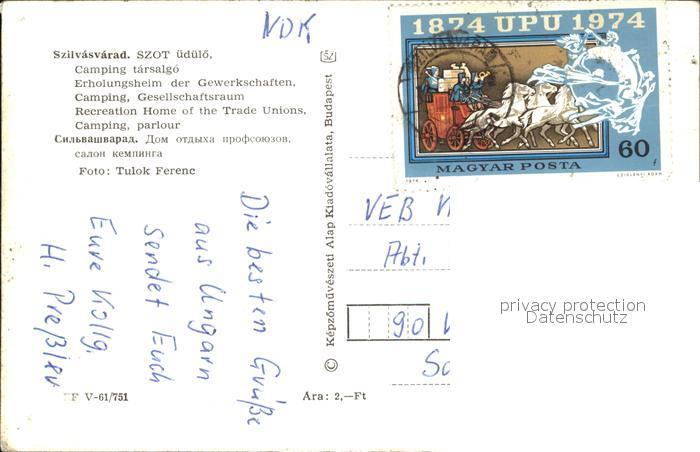 NDK
1874 UPU 1974
60
MAGYAR POSTA
Szilvásvárad. SZOT üdülő,
Camping társalgó
Erholungsheim der Gewerkschaften,
Camping, Gesellschaftsraum
Recreation Home of the Trade Unions,
Camping, parlour
Сильвашварад. Дом отдыха профсоюзов,
салон кемпинга
Foto: Tulok Ferenc
52
© Képzőművészeti Alap Kiadóvállalata, Budapest
Die besten Grüße
aus Ungarn
sendet Euch
Eure Kollg.
H.
VEB
Abt.
90
privacy protection
Datenschutz
F V-61/751
Ára: 2,—Ft